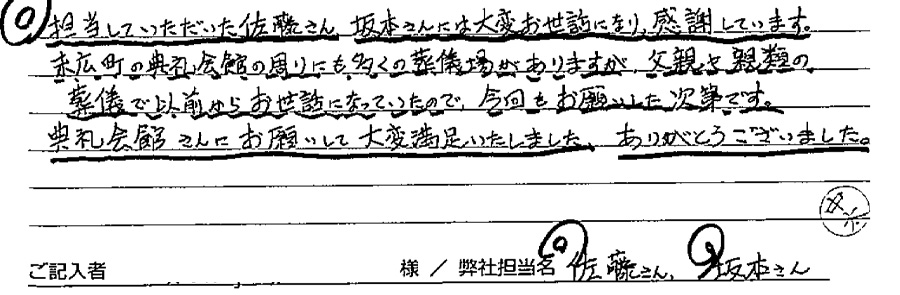 担当していただいた佐藤さん 坂本さんには大変お世話になり、感謝しています。
末広町の典礼会館の周りにも多くの葬儀場がありますが、父親や親類の
葬儀で以前からお世話になっていたので、今回もお願いした次第です。
典礼会館さんにお願いして大変満足いたしました、ありがとうございました。
ご記入者 様 / 弊社担当名 佐藤さん、坂本さん